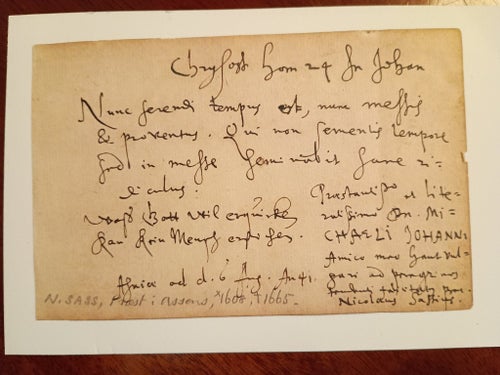 Chrysost hom 24 In Johan
Nunc serendi tempus est, nunc messis
& proventus. Qui non sementis tempore
sed in messe seminabit sane ri-
diculus.
Waß Gott wil erquicken
Kan Kein Mensch ersticken.
Præstantiss et lite-
ratissimo Dn. Mi-
CHAELI JOHANNI
Amico meo haut vul-
gari ad
Nicolaus Sassius.
ad d. 6 Aug. An 41.
N. SASS, Præst i Assens, *1608, †1665.